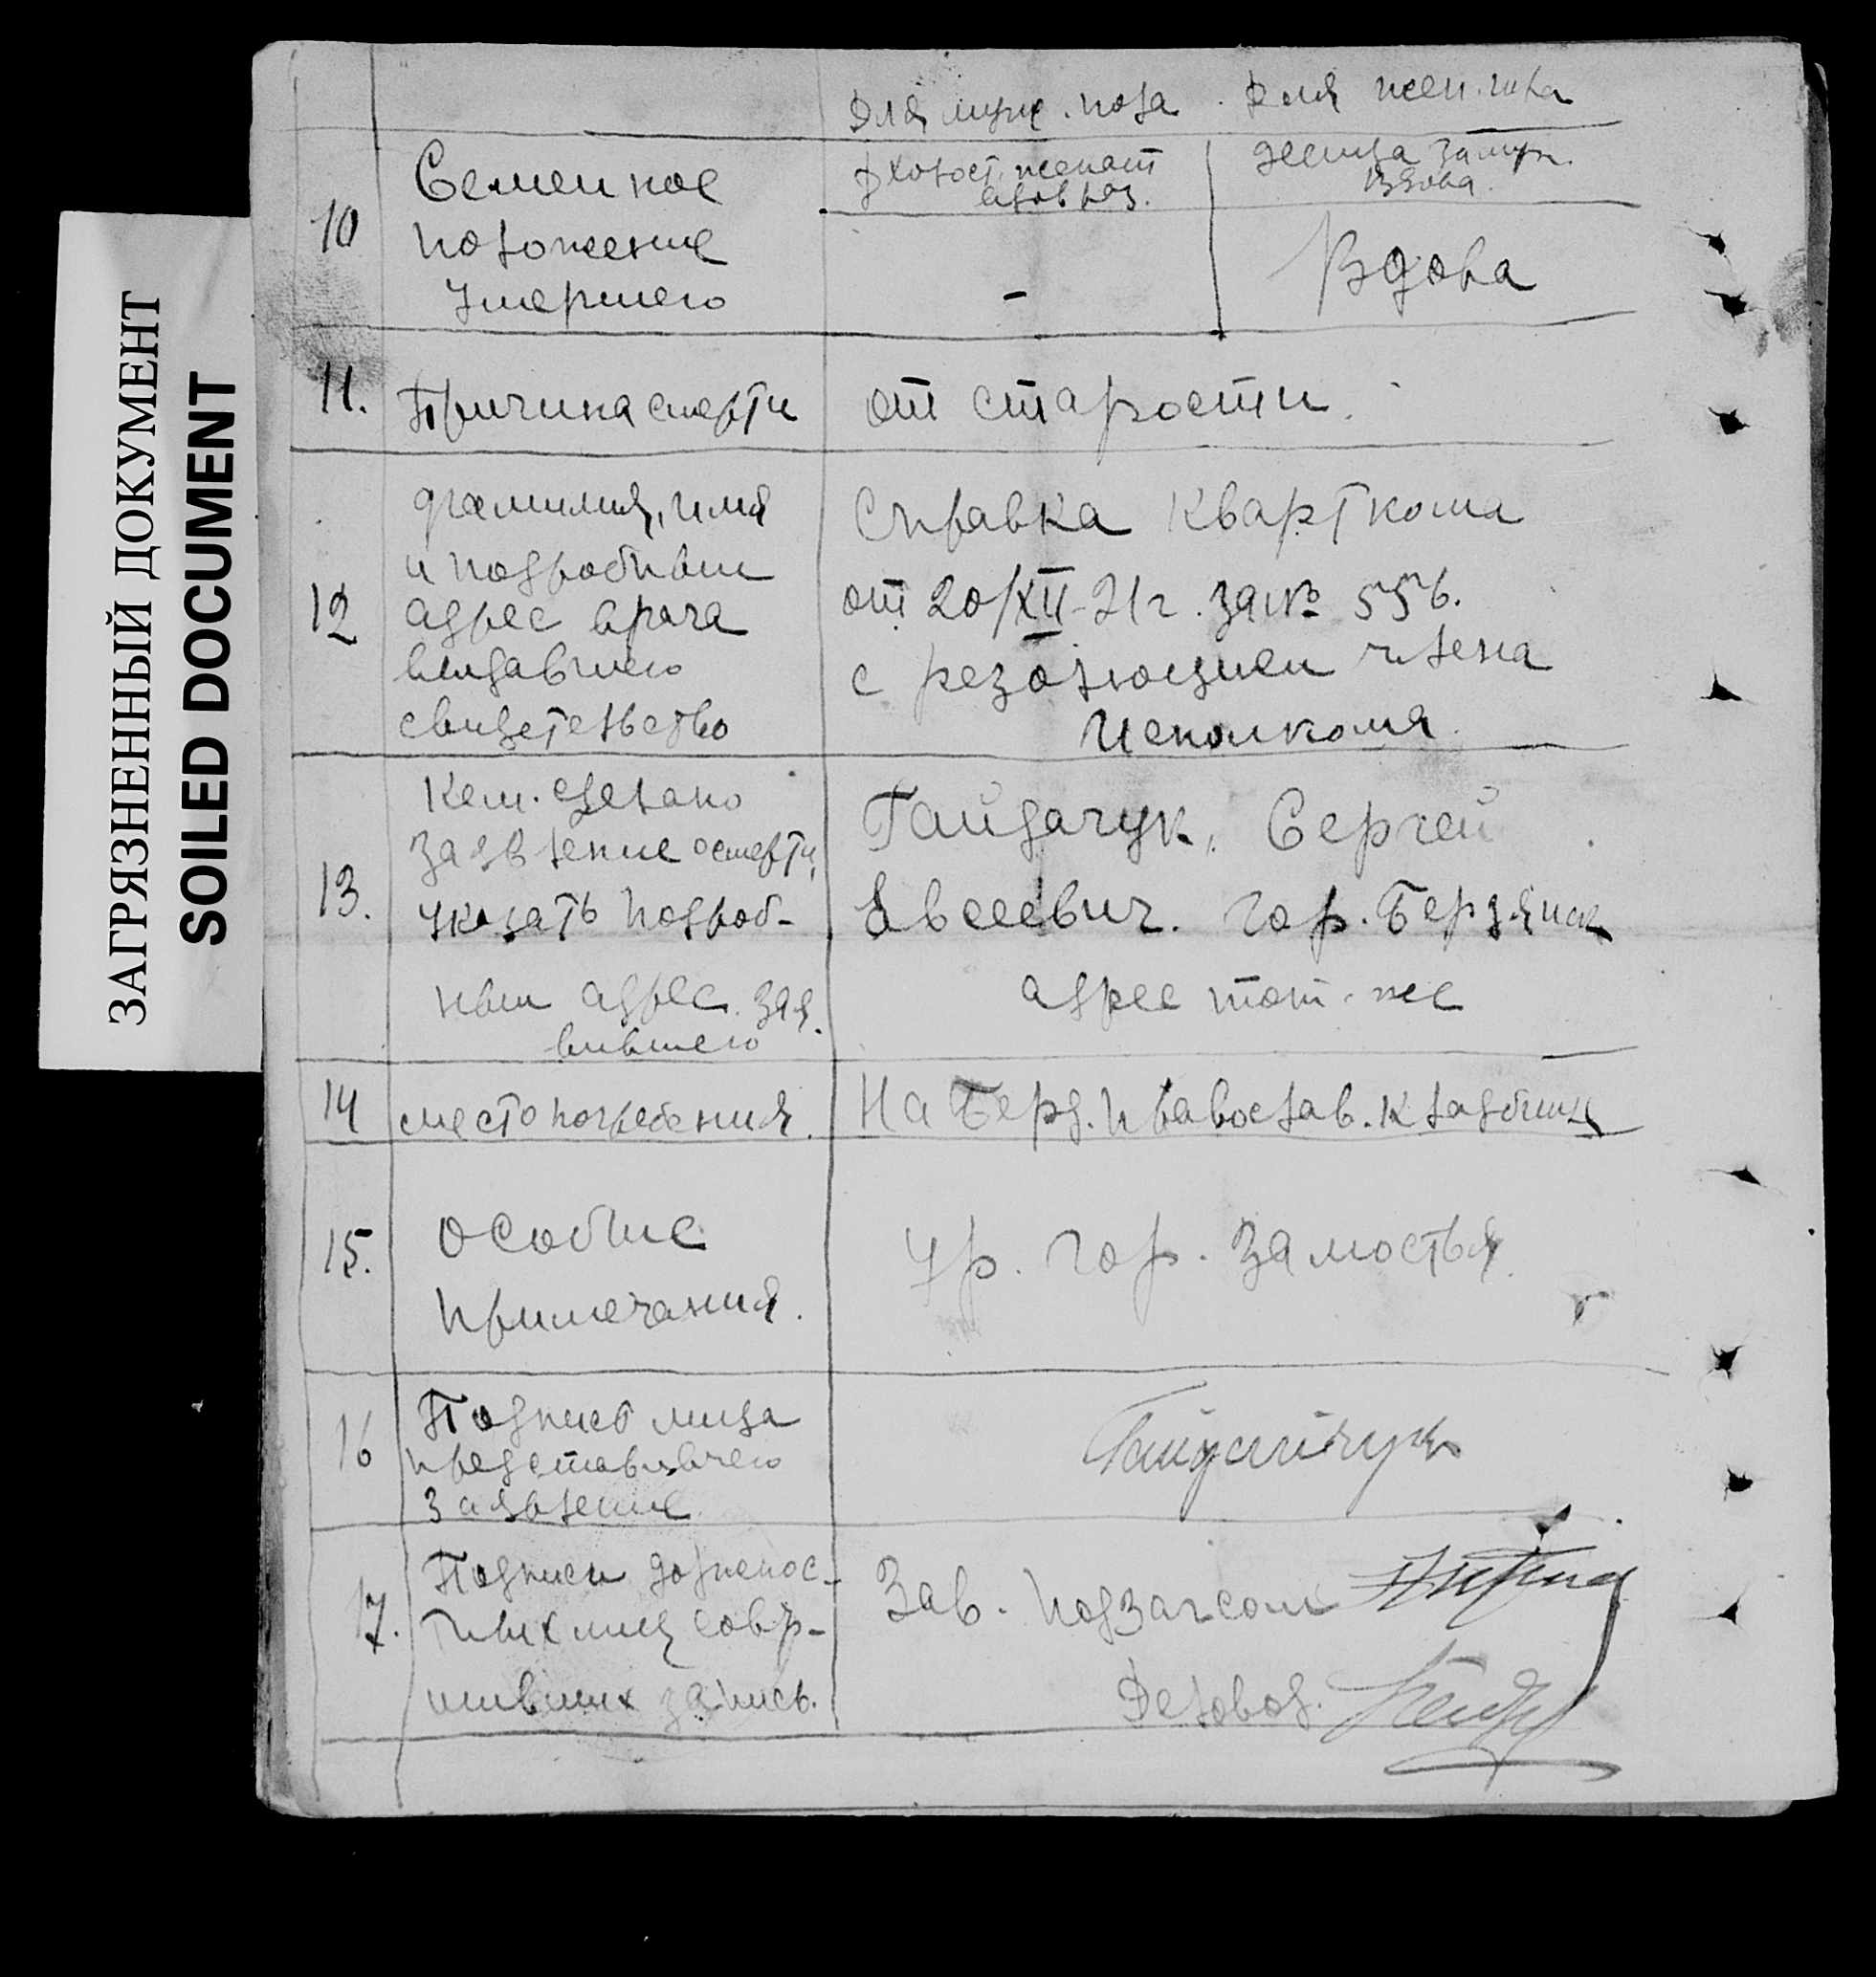 ЗАГРЯЗНЕННЫЙ ДОКУМЕНТ
SOILED DOCUMENT
для муж. пола. для жен. пола
10
Семейное
положение
умершего
холост, женат
вдов, раз.
девица замуж.
вдова.
-
Вдова
11. Причина смерти
от старости.
12
фамилия, имя
и подробный
адрес врача
выдавшего
свидетельство
Справка Кварткома
от 20/XII-21г. за № 556.
с резолюцией члена
Исполкома.
13.
Кем. сделано
заявление о смерти,
указать подроб-
ный адрес. зая.
вившего
Гайдачук, Сергей
Евсеевич. гор. Бердянск
адрес тот-же
14 место погребения.
На Берд. православ. кладбище
15.
особые
примечания.
Ур. гор. Замостья.
16
Подпись лица
представившего
заявление
Гайдачук
17.
Подписи должнос-
тных лиц совер-
шивших запись.
Зав. подзагсом
Деловод.